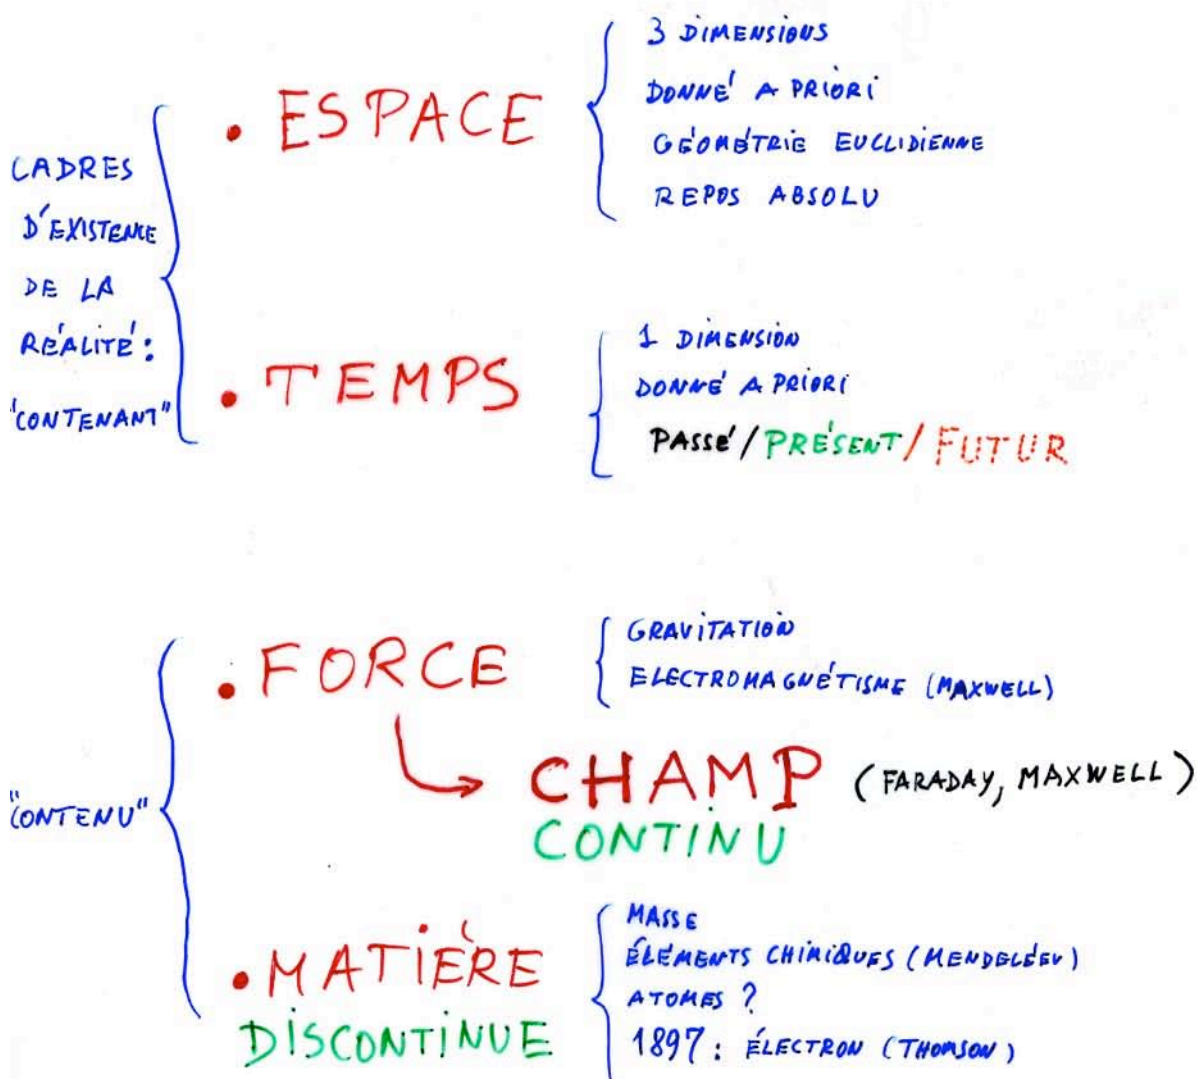 CADRES
D'EXISTENCE
DE LA
RÉALITÉ:
"CONTENANT"
. ESPACE
3 DIMENSIONS
DONNÉ A PRIORI
GÉOMÉTRIE EUCLIDIENNE
REPOS ABSOLU
. TEMPS
1 DIMENSION
DONNÉ A PRIORI
PASSÉ/PRÉSENT/FUTUR
"CONTENU"
. FORCE
GRAVITATION
ELECTROMAGNÉTISME (MAXWELL)
CHAMP (FARADAY, MAXWELL)
CONTINU
. MATIÈRE
DISCONTINUE
MASSE
ÉLÉMENTS CHIMIQUES (MENDELÉEV)
ATOMES ?
1897: ÉLECTRON (THOMSON)